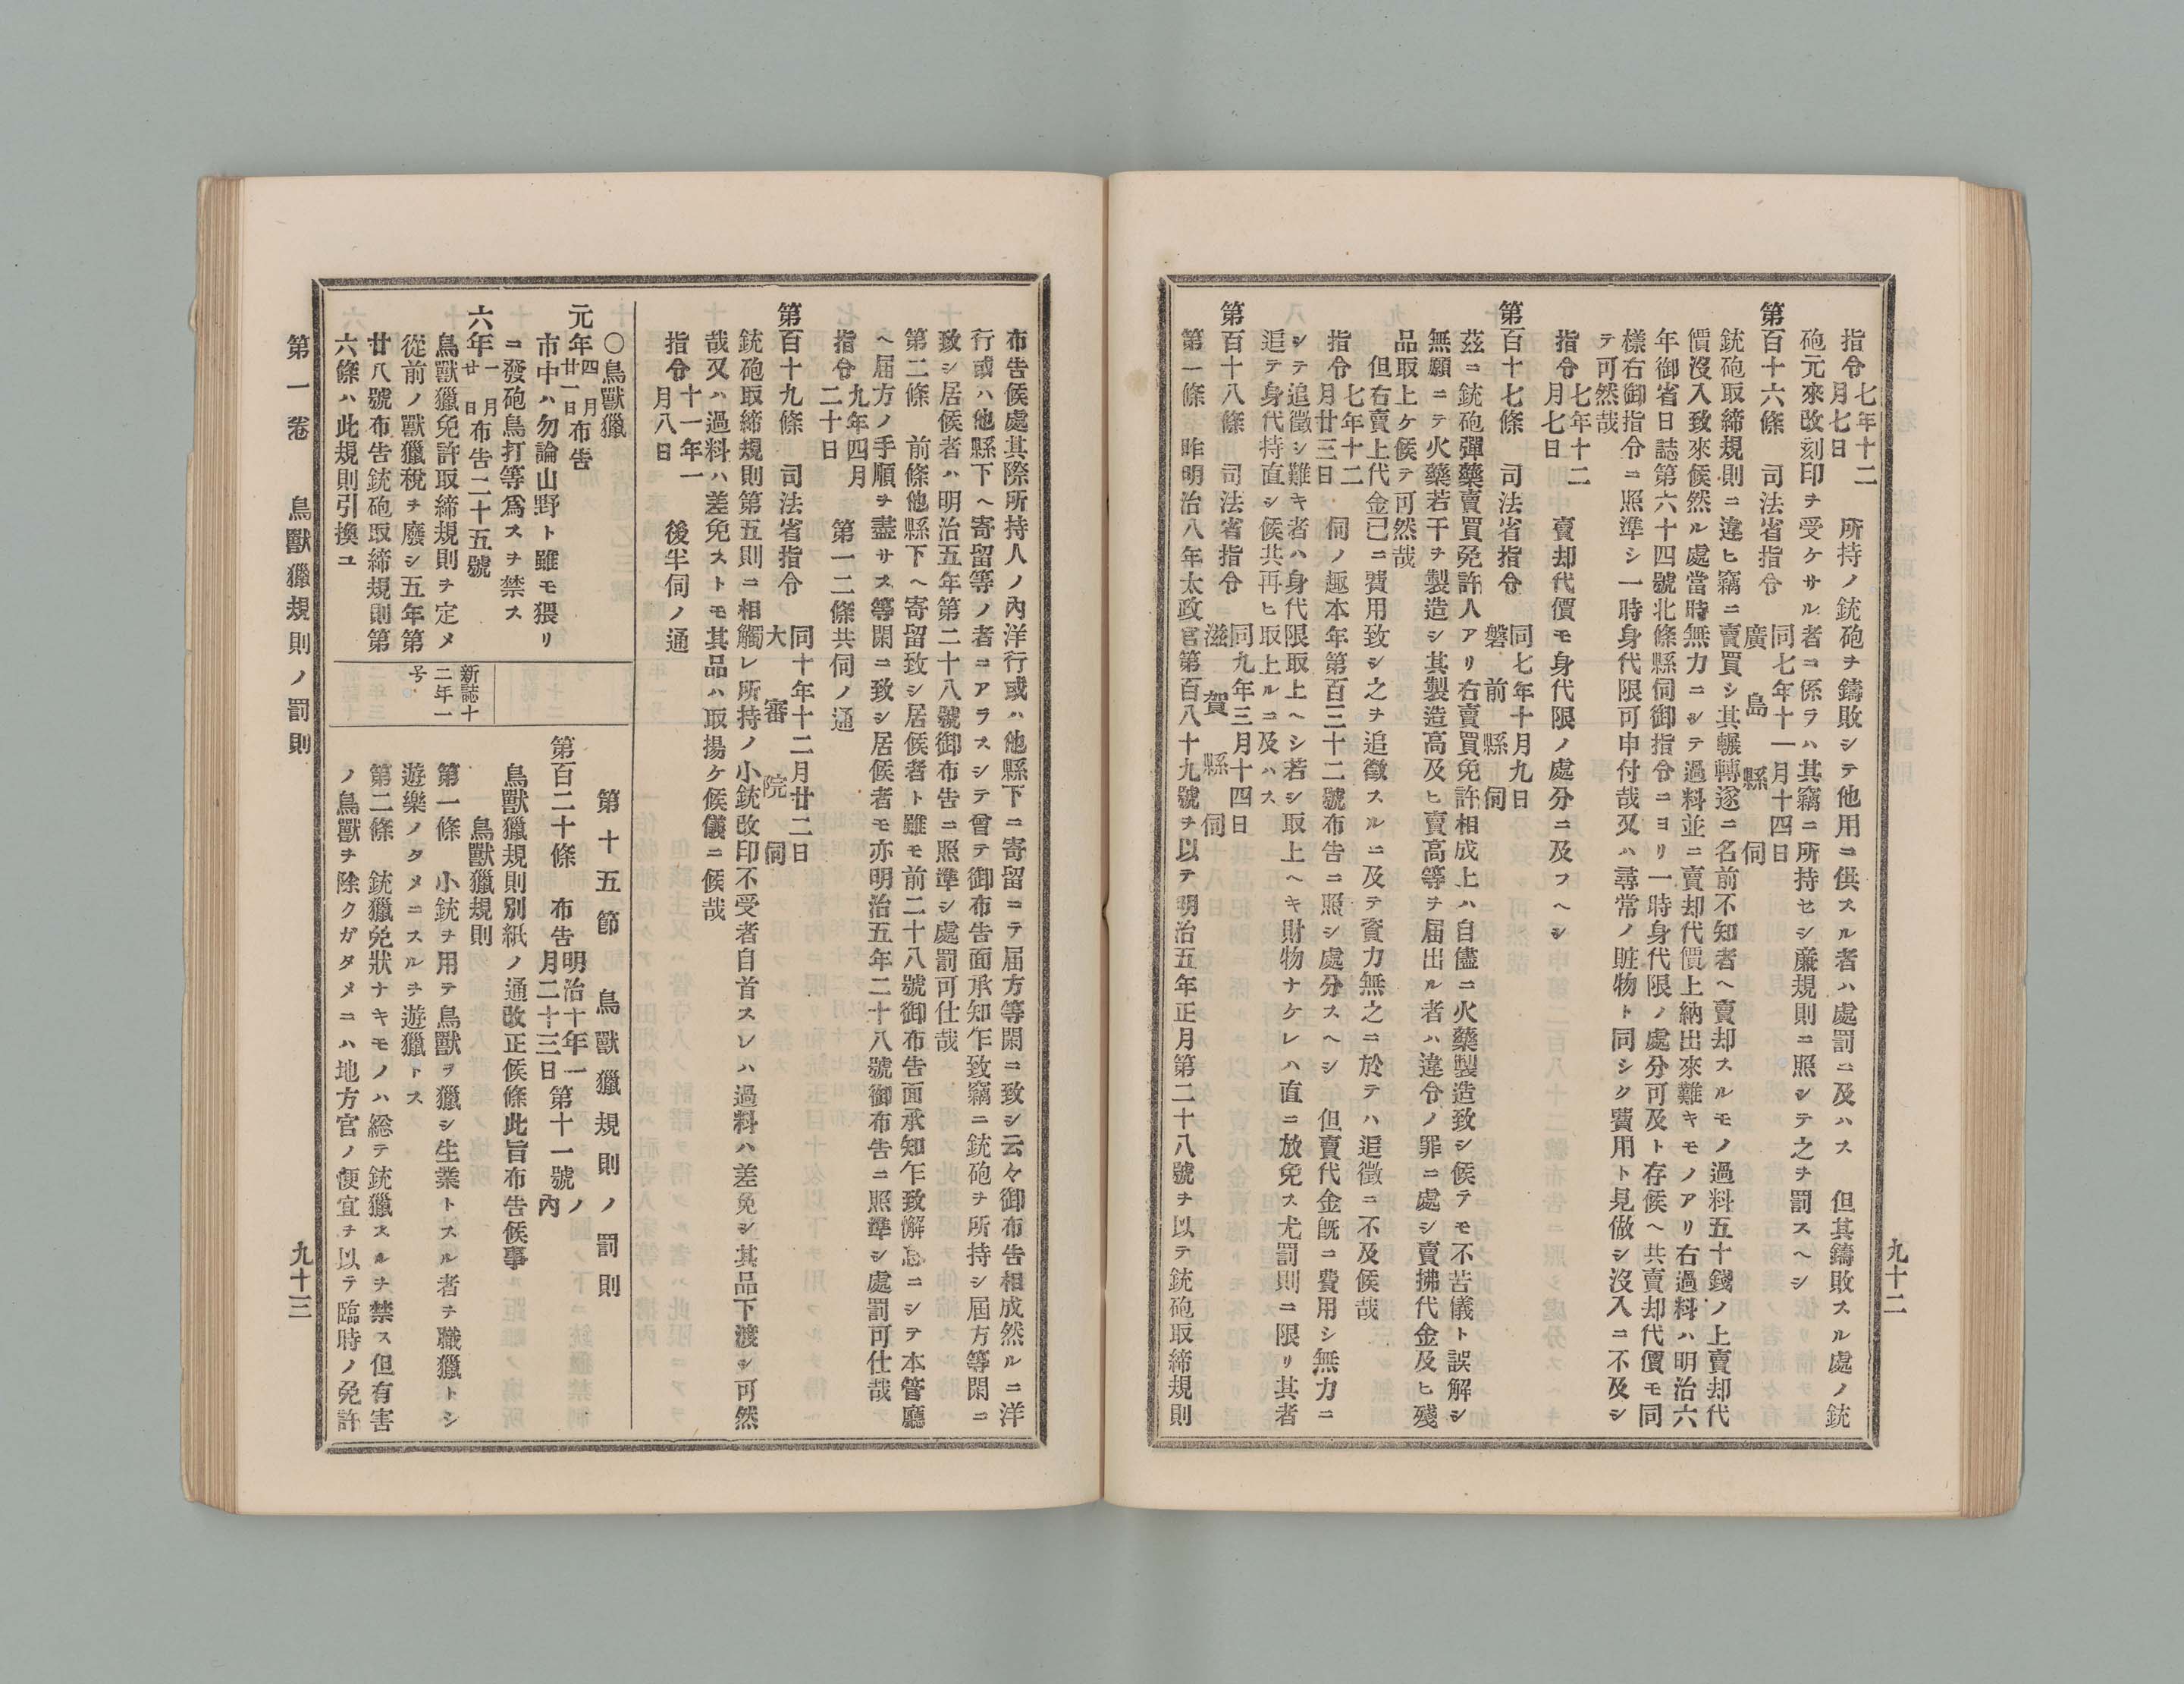 指令七年十二月七日　所持ノ銃砲ヲ鑄敗シテ他用ニ供スル者ハ處罰ニ及ハス　但其鑄敗スル處ノ銃
砲元來改刻印ヲ受ケサル者ニ係ラハ其竊ニ所持セシ廉規則ニ照シテ之ヲ罰スヘシ
第百十六條　司法省指令　同七年十一月十四日　廣島縣伺
銃砲取締規則ニ違ヒ竊ニ賣買シ其輾轉遂ニ名前不知者ヘ賣却スルモノ過料五十錢ノ上賣却代
價沒入致來候然ル處當時無力ニシテ過料並ニ賣却代價上納出來難キモノアリ右過料ハ明治六
年御省日誌第六十四號北條縣伺御指令ニヨリ一時身代限ノ處分可及ト存候ヘ共賣却代價モ同
樣右御指令ニ照準シ一時身代限可申付哉又ハ尋常ノ賍物ト同シク費用ト見做シ沒入ニ不及シ
テ可然哉
指令七年十二月七日　賣却代價モ身代限ノ處分ニ及フヘシ
第百十七條　司法省指令　同七年十月九日　磐前縣伺
茲ニ銃砲彈藥賣買免許人アリ右賣買免許相成上ハ自儘ニ火藥製造致シ候テモ不苦儀ト誤解シ
無願ニテ火藥若干ヲ製造シ其製造高及ヒ賣高等ヲ届出ル者ハ違令ノ罪ニ處シ賣拂代金及ヒ殘
品取上ケ候テ可然哉
但右賣上代金已ニ費用致シ之ヲ追徵スルニ及テ資力無之ニ於テハ追徵ニ不及候哉
指令七年十二月廿三日　伺ノ趣本年第百三十二號布告ニ照シ處分スヘシ　但賣代金既ニ費用シ無力ニ
シテ追徵シ難キ者ハ身代限取上ヘシ若シ取上ヘキ財物ナケレハ直ニ放免ス尤罰則ニ限リ其者
追テ身代持直シ候共再ヒ取上ルニ及ハス
第百十八條　司法省指令　同九年三月十四日　滋賀縣伺
第一條　昨明治八年太政官第百八十九號ヲ以テ明治五年正月第二十八號ヲ以テ銃砲取締規則
九十二
布告候處其際所持人ノ內洋行或ハ他縣下ニ寄留ニテ届方等閑ニ致シ云々御布告相成然ルニ洋
行或ハ他縣下ヘ寄留等ノ者ニアラスシテ曾テ御布告面承知乍致竊ニ銃砲ヲ所持シ屆方等閑ニ
致シ居候者ハ明治五年第二十八號御布告ニ照準シ處罰可仕哉
第二條　前條他縣下ヘ寄留致シ居候者ト雖モ前二十八號御布告面承知乍致懈怠ニシテ本管廳
ヘ届方ノ手順ヲ盡サス等閑ニ致シ居候者モ亦明治五年二十八號御布告ニ照準シ處罰可仕哉
指令九年四月二十日　第一二條共伺ノ通
第百十九條　司法省指令　同十年十二月廿二日　大審院伺
銃砲取締規則第五則ニ相觸レ所持ノ小銃改印不受者自首スレハ過料ハ差免シ其品下渡シ可然
哉又ハ過料ハ差免ストモ其品ハ取揚ケ候儀ニ候哉
指令十一年一月八日　後半伺ノ通
○鳥獸獵
元年四月廿一日布告
市中ハ勿論山野ト雖モ猥リ
ニ發砲鳥打等爲スヲ禁ス
六年一月廿日布告二十五號
鳥獸獵免許取締規則ヲ定メ
從前ノ獸獵稅ヲ廢シ五年第
廿八號布告銃砲取締規則第
六條ハ此規則引換ユ
新誌十
二年一
号
第十五節　鳥獸獵規則ノ罰則
第百二十條　布告明治十年一月二十三日第十一號ノ內
鳥獸獵規則別紙ノ通改正候條此旨布告候事
鳥獸獵規則
第一條　小銃ヲ用テ鳥獸ヲ獵シ生業トスル者ヲ職獵トシ
遊樂ノタメニスルヲ遊獵トス
第二條　銃獵免狀ナキモノハ総テ銃獵スルヲ禁ス但有害
ノ鳥獸ヲ除クガタメニハ地方官ノ便宜ヲ以テ臨時ノ免許
第一卷　鳥獸獵規則ノ罰則　九十三